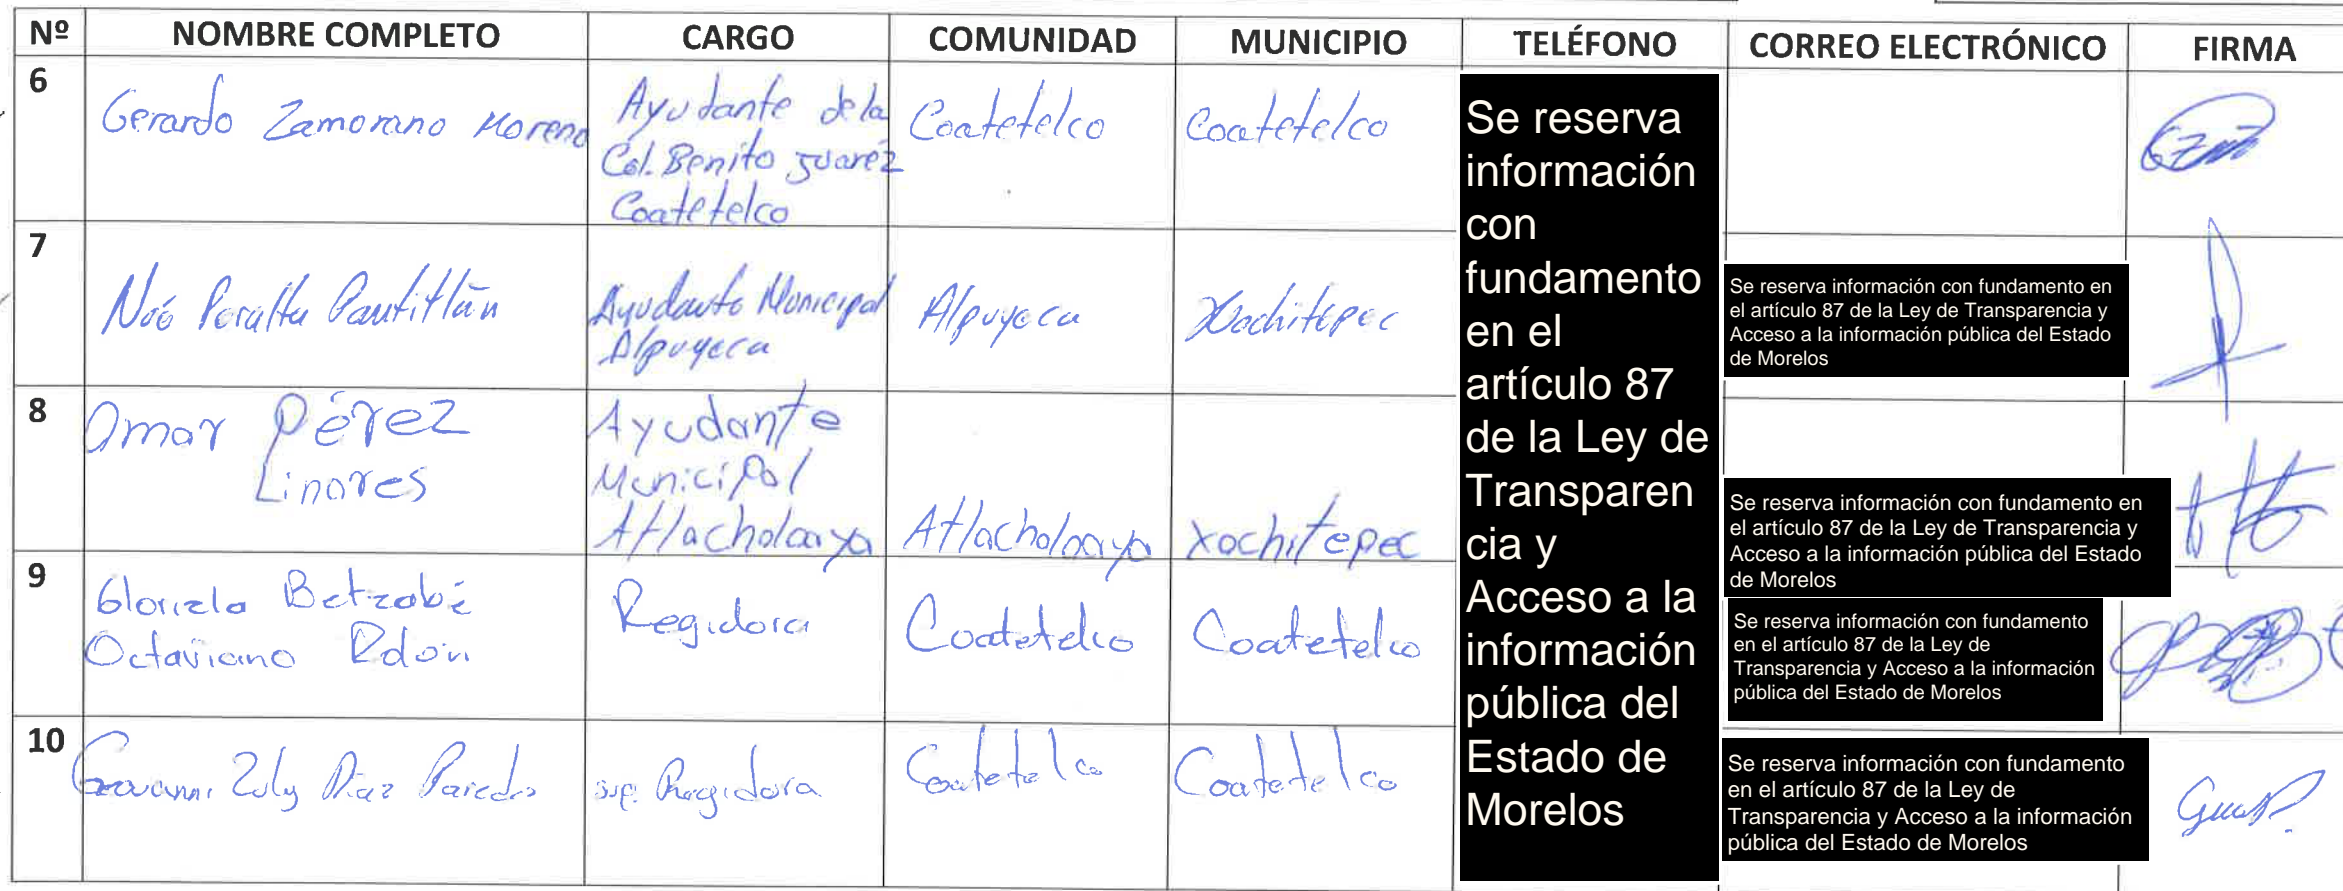 Nº NOMBRE COMPLETO CARGO COMUNIDAD MUNICIPIO TELÉFONO CORREO ELECTRÓNICO FIRMA
6
Gerardo Zamorano Moreno
Ayudante de la
Col. Benito Juaréz
Coatetelco
Coatetelco
Coatetelco
Se reserva
información
con
fundamento
en el
artículo 87
de la Ley de
Transparen
cia y
Acceso a la
información
pública del
Estado de
Morelos
7
Noé Peralta Pantitlán
Ayudante Municipal
Alpuyeca
Alpuyeca
Xochitepec
Se reserva información con fundamento en
el artículo 87 de la Ley de Transparencia y
Acceso a la información pública del Estado
de Morelos
8
Omar Pérez
Linares
Ayudante
Municipal
Atlacholoaya
Atlacholoaya
Xochitepec
Se reserva información con fundamento en
el artículo 87 de la Ley de Transparencia y
Acceso a la información pública del Estado
de Morelos
9
Betzabé
Octaviano
Regidora
Coatetelco
Coatetelco
Se reserva información con fundamento
en el artículo 87 de la Ley de
Transparencia y Acceso a la información
pública del Estado de Morelos
10
Zuly Díaz Paredes
sup. Regidora
Coatetelco
Coatetelco
Se reserva información con fundamento
en el artículo 87 de la Ley de
Transparencia y Acceso a la información
pública del Estado de Morelos